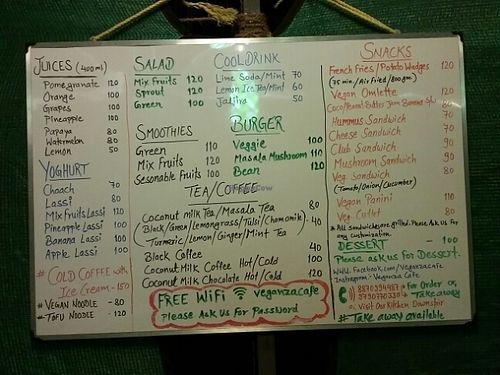 JUICES (400ml)
Pomegranate 120
Orange 100
Grapes 100
Pineapple 100
Papaya 80
Watermelon 80
Lemon 50
YOGHURT
Chaach 70
Lassi 80
Mix fruits Lassi 120
Pineapple Lassi 100
Banana Lassi 100
Apple Lassi 100
# COLD COFFEE with
Ice Cream - 150
# VEGAN NOODLE - 80
# TOFU NOODLE - 120
SALAD
Mix Fruits 120
Sprout 120
Green 100
SMOOTHIES
Green 110
Mix Fruits 120
Sesonable Fruits 100
COOLDRINK
Lime Soda/Mint 70
Lemon Ice Tea/Mint 60
Jaljira 50
BURGER
Veggie 100
Masala Mushroom 110
Bean 120
TEA/COFFEE
Coconut milk Tea/Masala Tea 80
(Black/Green/Lemongrass/Tulsi/Chamomile) - 40
(Turmeric/Lemon/Ginger/Mint Tea
Black Coffee 40
Coconut Milk Coffee Hot/Cold 100
Coconut Milk Chocolate Hot/Cold 120
FREE WiFi veganzacafe
Please Ask Us For PassWord
SNACKS
French Fries/Potato Wedges 120
Vegan Omlette 120
Hummus Sandwich 70
Cheese Sandwich 70
Club Sandwich 90
Mushroom Sandwich 90
Veg Sandwich 80
(Tomato/Onion/Cucumber)
Vegan Panini 110
Veg Cutlet 80
* All Sandwiches are grilled. Please Ask Us For
any customization.
DESSERT - 100
Please ask us for Dessert.
www.facebook.com/veganzacafe
Instagram - Veganza Cafe
For Order or,
Take away
Visit Our Kitchen Downstair
# Take away available